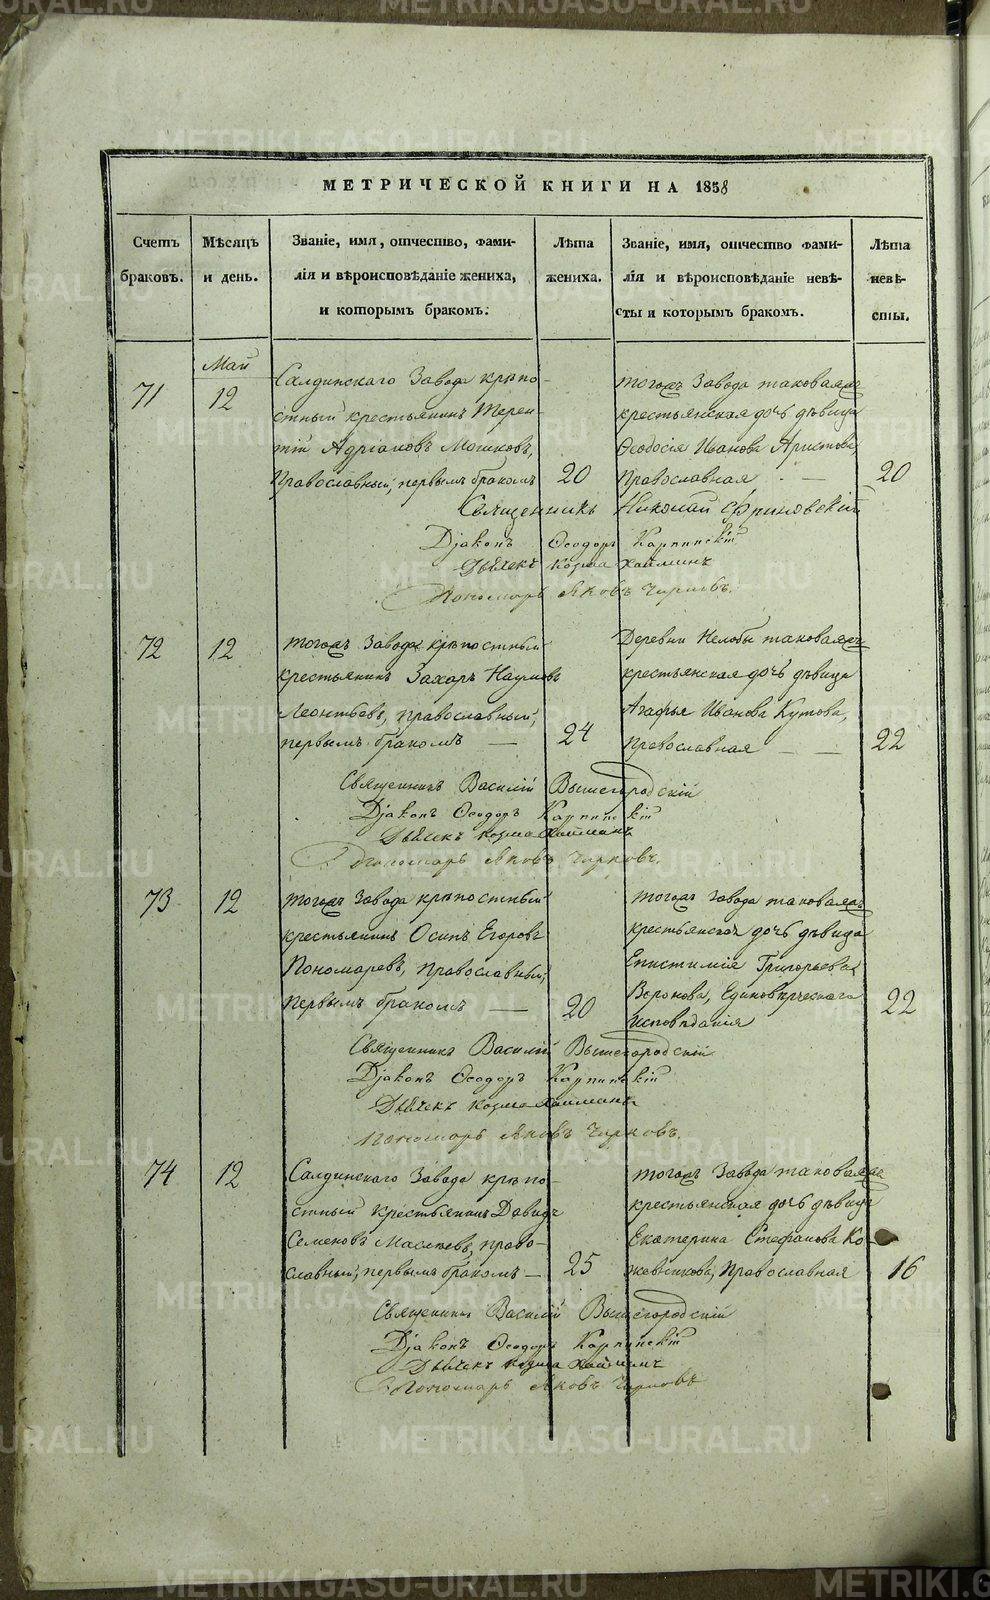 МЕТРИЧЕСКОЙ КНИГИ НА 1858
Счетъ браковъ.
Мѣсяцъ и день.
Званіе, имя, отчество, фами-
лія и вѣроисповѣданіе жениха,
и которымъ бракомъ.
Лѣта жениха.
Званіе, имя, отчество фами-
лія и вѣроисповѣданіе невѣ-
сты и которымъ бракомъ.
Лѣта невѣ-
сты.
71
Май
12
Салдинскаго Завода крѣпо-
стный крестьянинъ Терен-
тій Адріановъ Мошковъ,
Православный, первымъ бракомъ
20
тогожъ Завода таковаяжъ
крестьянская дочь дѣвица
Ѳеодосія Иванова Аристова,
Православная
20
Священникъ Николай Фриновскій
Діаконъ Ѳеодоръ Карпинскій
Дьячекъ Козма Хаймінъ
Пономарь Яковъ Чирковъ.
72
12
тогожъ Завода крѣпостный
крестьянинъ Захаръ Наумовъ
Леонтьевъ, православный,
первымъ бракомъ —
24
Деревни Нелобы таковаяжъ
крестьянская дочь дѣвица
Агафья Иванова Кутова,
Православная — —
22
Священникъ Василій Вышегородскій
Діаконъ Ѳеодоръ Карпинскій
Дьячекъ Козма Хаймінъ
Пономарь Яковъ Чирковъ.
73
12
тогожъ Завода крѣпостный
крестьянинъ Осипъ Егоровъ
Пономаревъ, Православный,
первымъ бракомъ —
20
тогожъ Завода таковаяжъ
крестьянская дочь дѣвица
Епистимія Григорьева
Воронова, Единовѣрческаго
исповѣданія
22
Священникъ Василій Вышегородскій
Діаконъ Ѳеодоръ Карпинскій
Дьячекъ Козма Хаймінъ
Пономарь Яковъ Чирковъ.
74
12
Салдинскаго Завода крѣпо-
стный крестьянинъ Давидъ
Семеновъ православный, первымъ бракомъ —
25
тогожъ Завода таковаяжъ
крестьянская дочь дѣвица
Екатерина Стефанова Ко-
жевникова, Православная
16
Священникъ Василій Вышегородскій
Діаконъ Ѳеодоръ Карпинскій
Дьячекъ Козма Хаймінъ
Пономарь Яковъ Чирковъ
METRIKI.GASO-URAL.RU